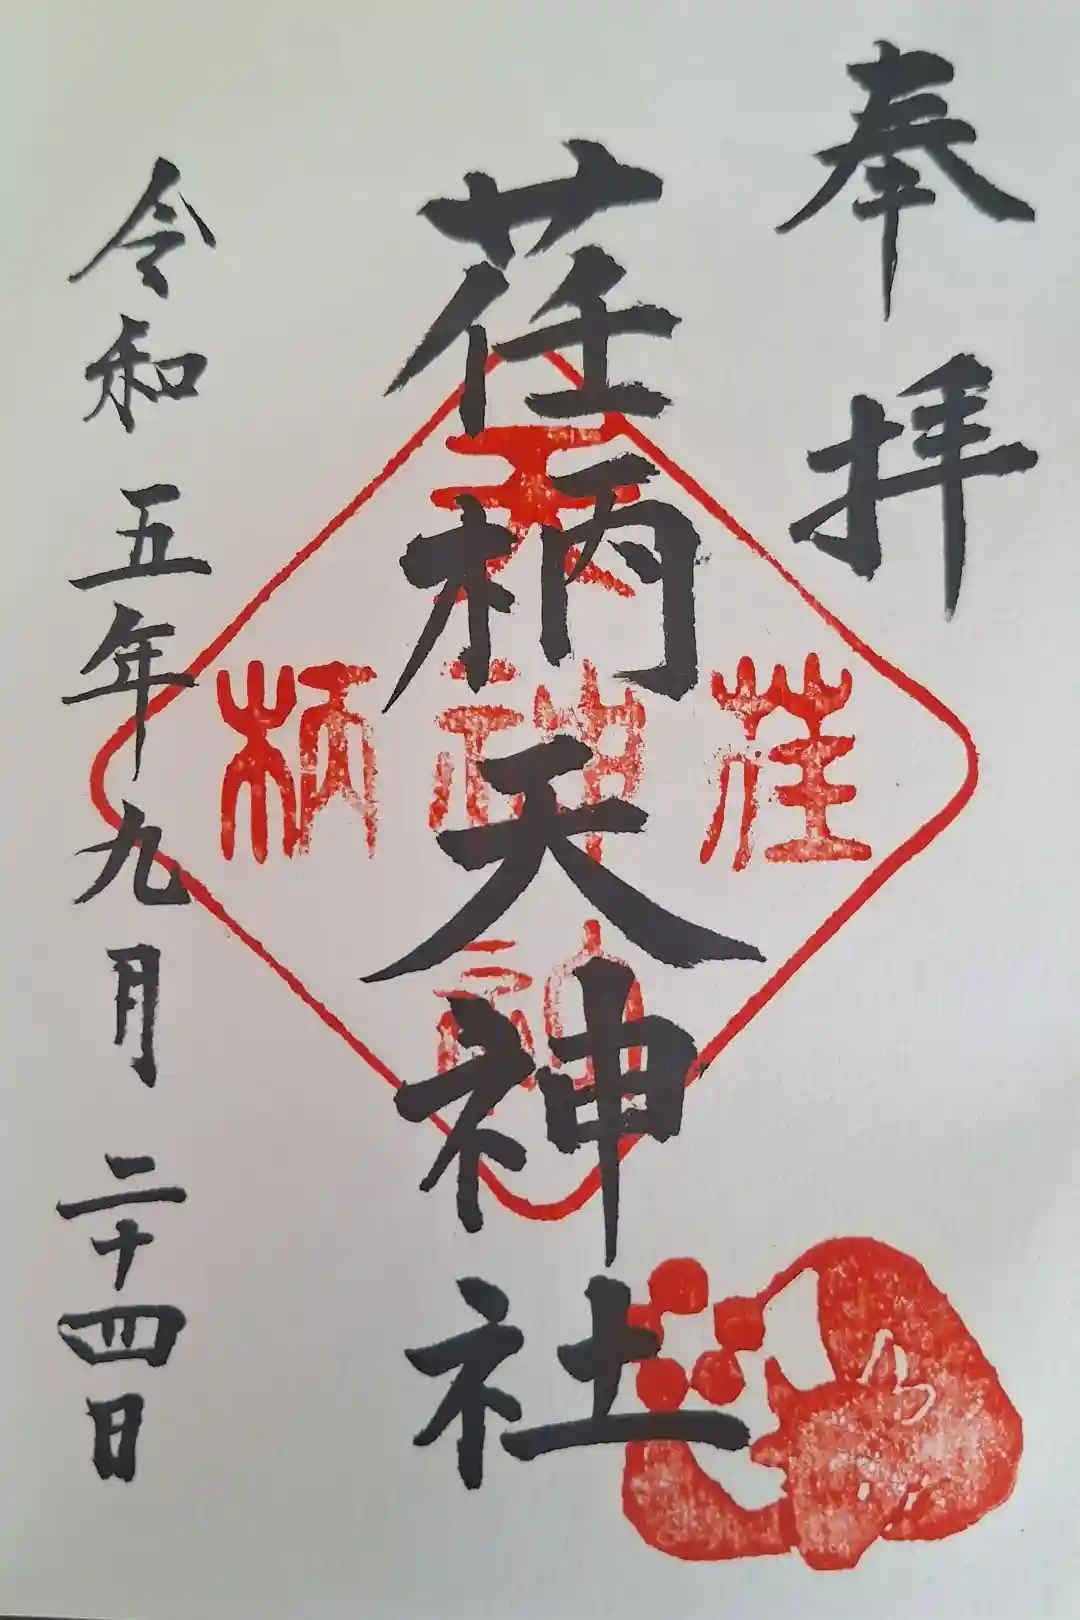 奉拝
荏柄天神社
令和五年九月二十四日
荏柄天神社